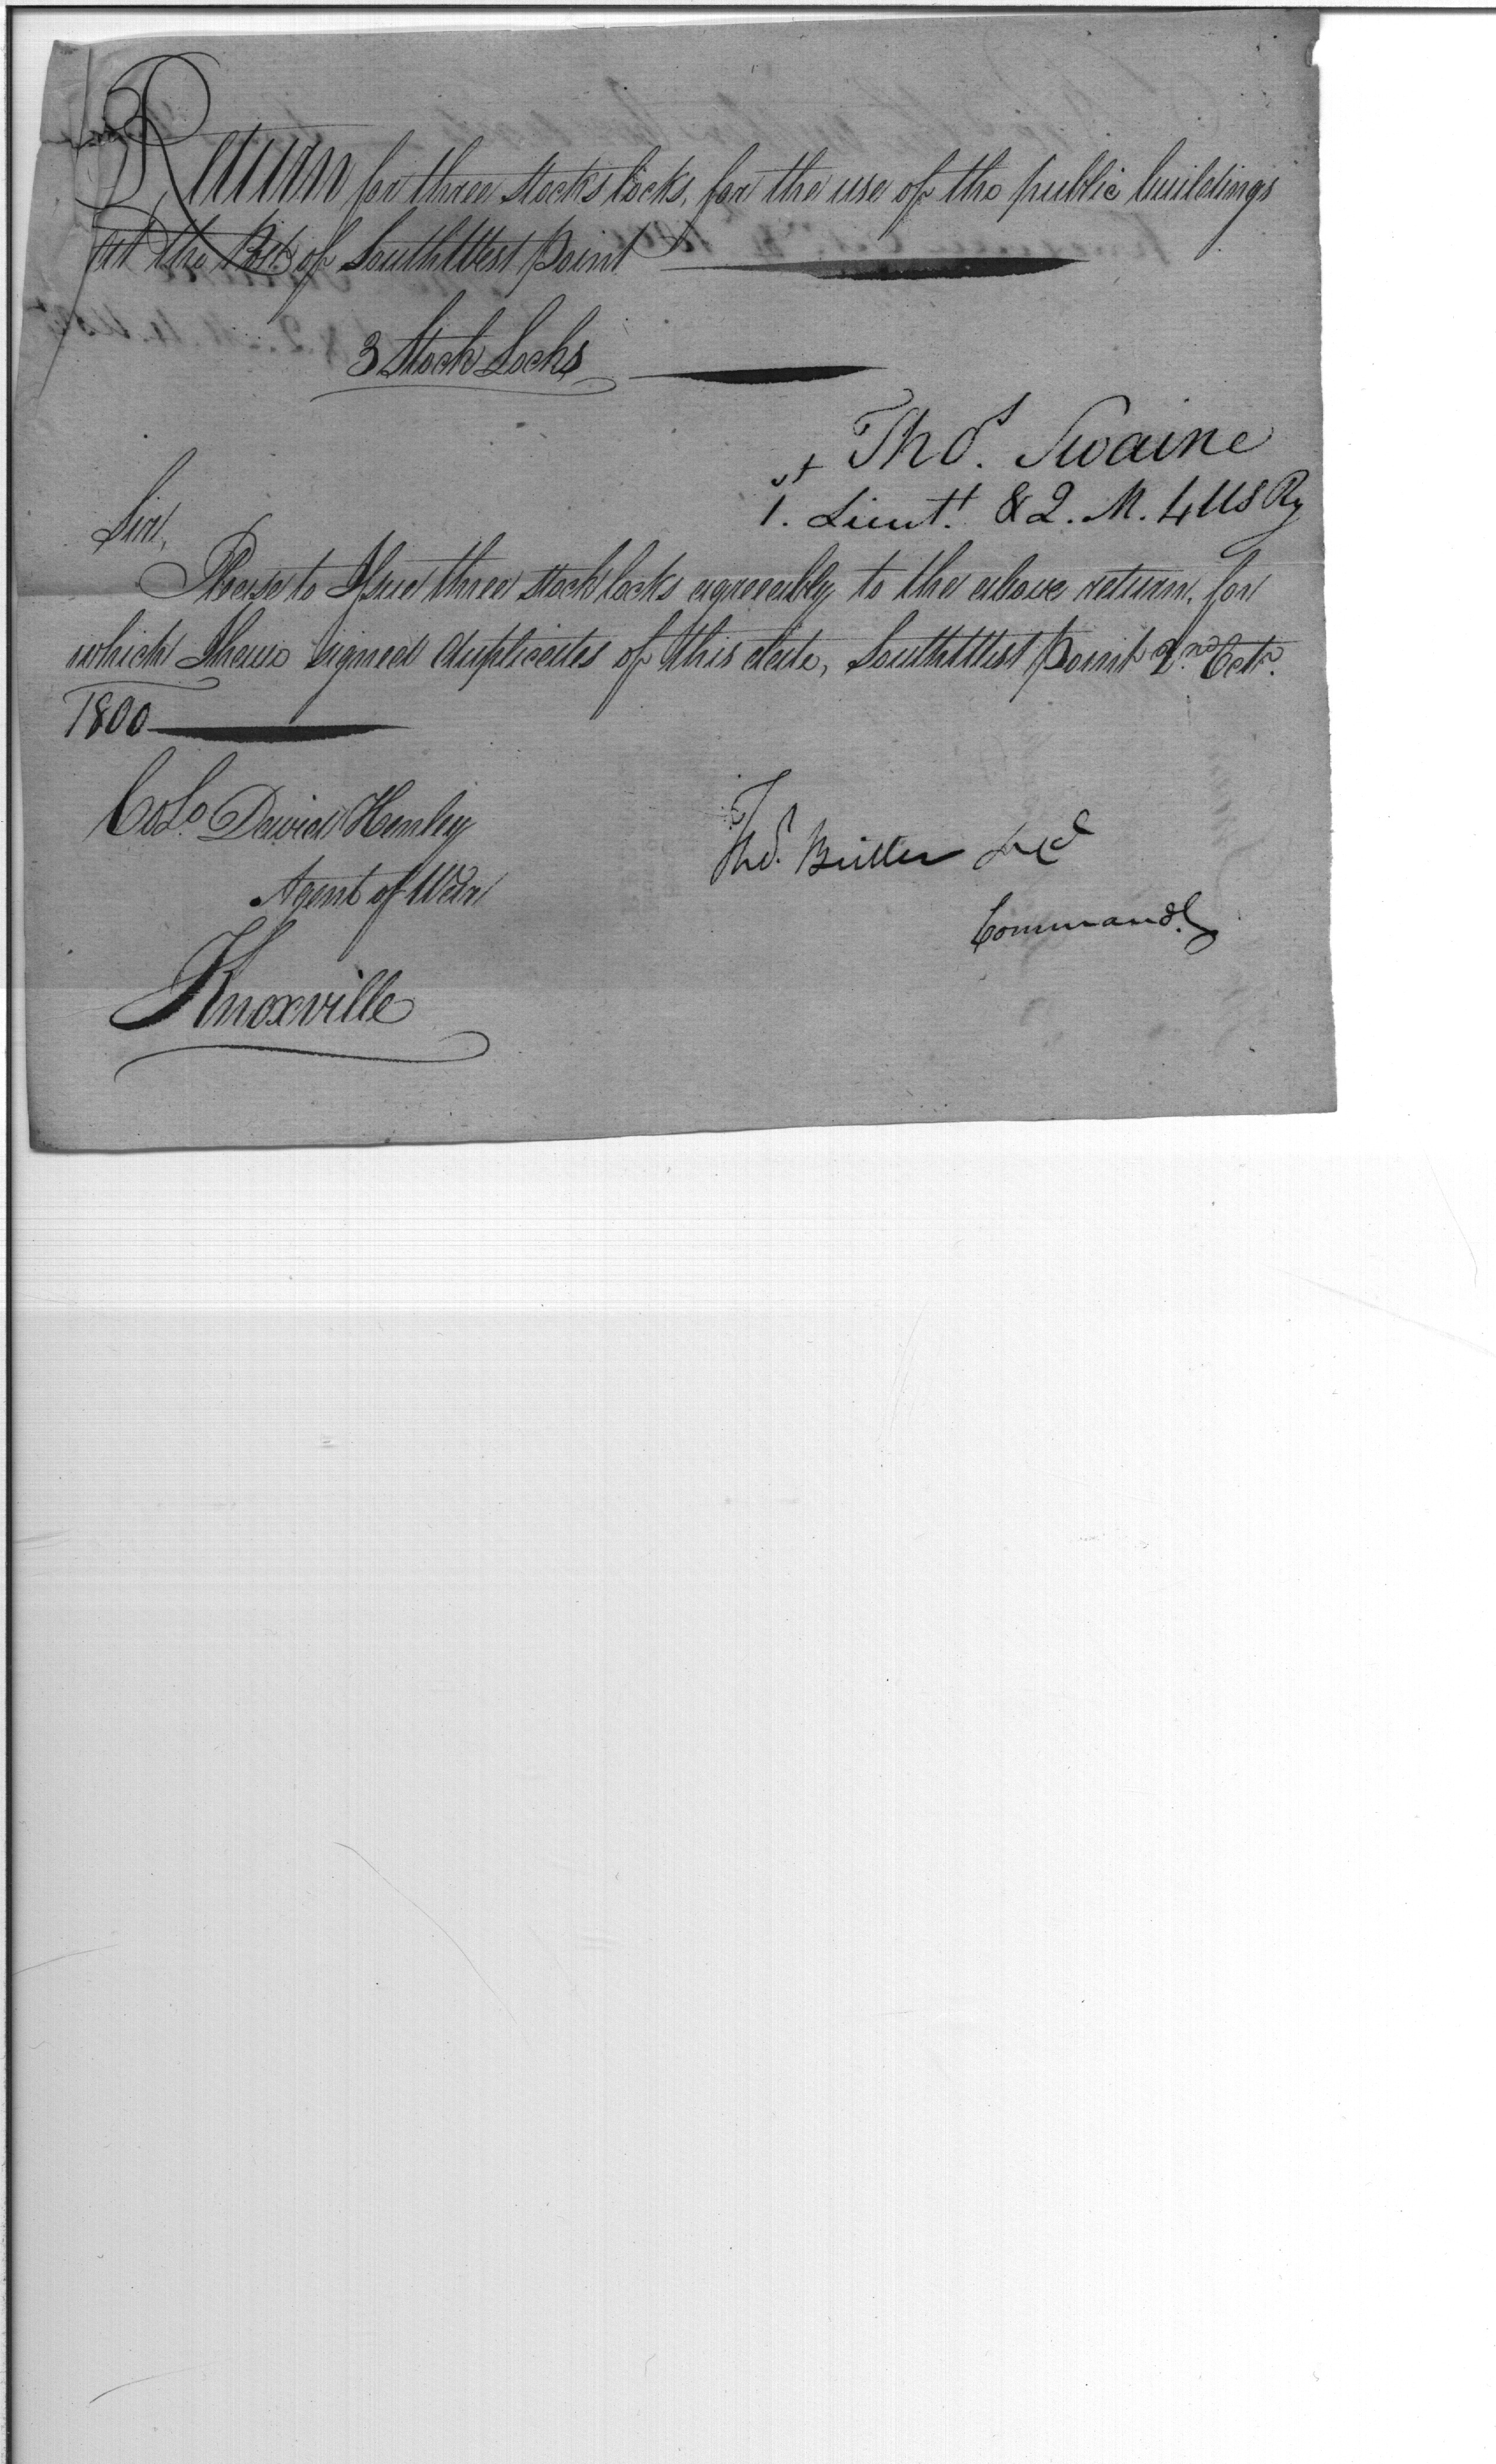 Return for three stocks locks, for the use of the public buildings
at the Pt. of South West Point
3 Stock Locks
Thos. Swaine
1st. Lieutt. & Q. M. 4 US Rg
Sir,
Please to Issue three stock locks agreeably to the above return, for
which I have signed duplicates of this date, South West Point 2nd Octr.
1800
Colo. David Henley
Agent of War
Knoxville
Thos. Butler
Commandg